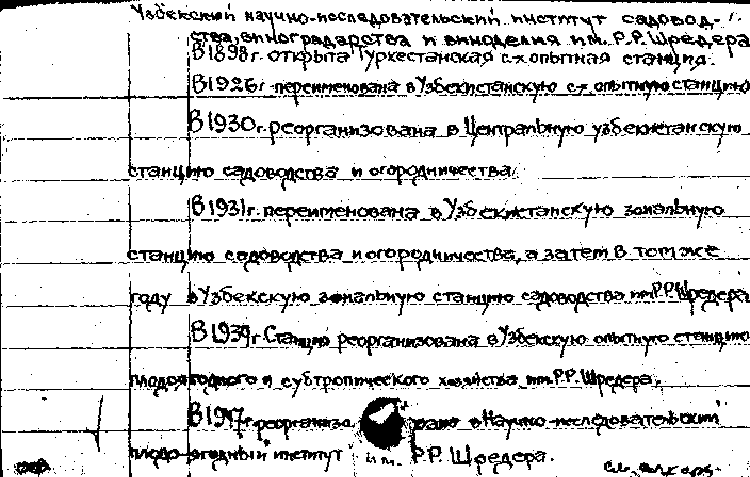 Узбекский научно-исследовательский институт садовод-
ства, виноградарства и виноделия им. Р.Р. Шредера
В 1898 г. открыта Туркестанская с-х опытная станция.
В 1926 г. переименована в Узбекистанскую с-х опытную станцию
В 1930 г. реорганизована в Центральную узбекистанскую
станцию садоводства и огородничества.
В 1931 г. переименована в Узбекистанскую зональную
станцию садоводства и огородничества, а затем в том же
году в Узбекскую зональную станцию садоводства им. Р.Р. Шредера
В 1939 г. Станция реорганизована в Узбекскую опытную станцию
плодоягодного и субтропического хозяйства им. Р.Р. Шредера.
В 1947 г. реорганизо вано в Научно-исследовательский
плодо-ягодный институт им. Р.Р. Шредера.